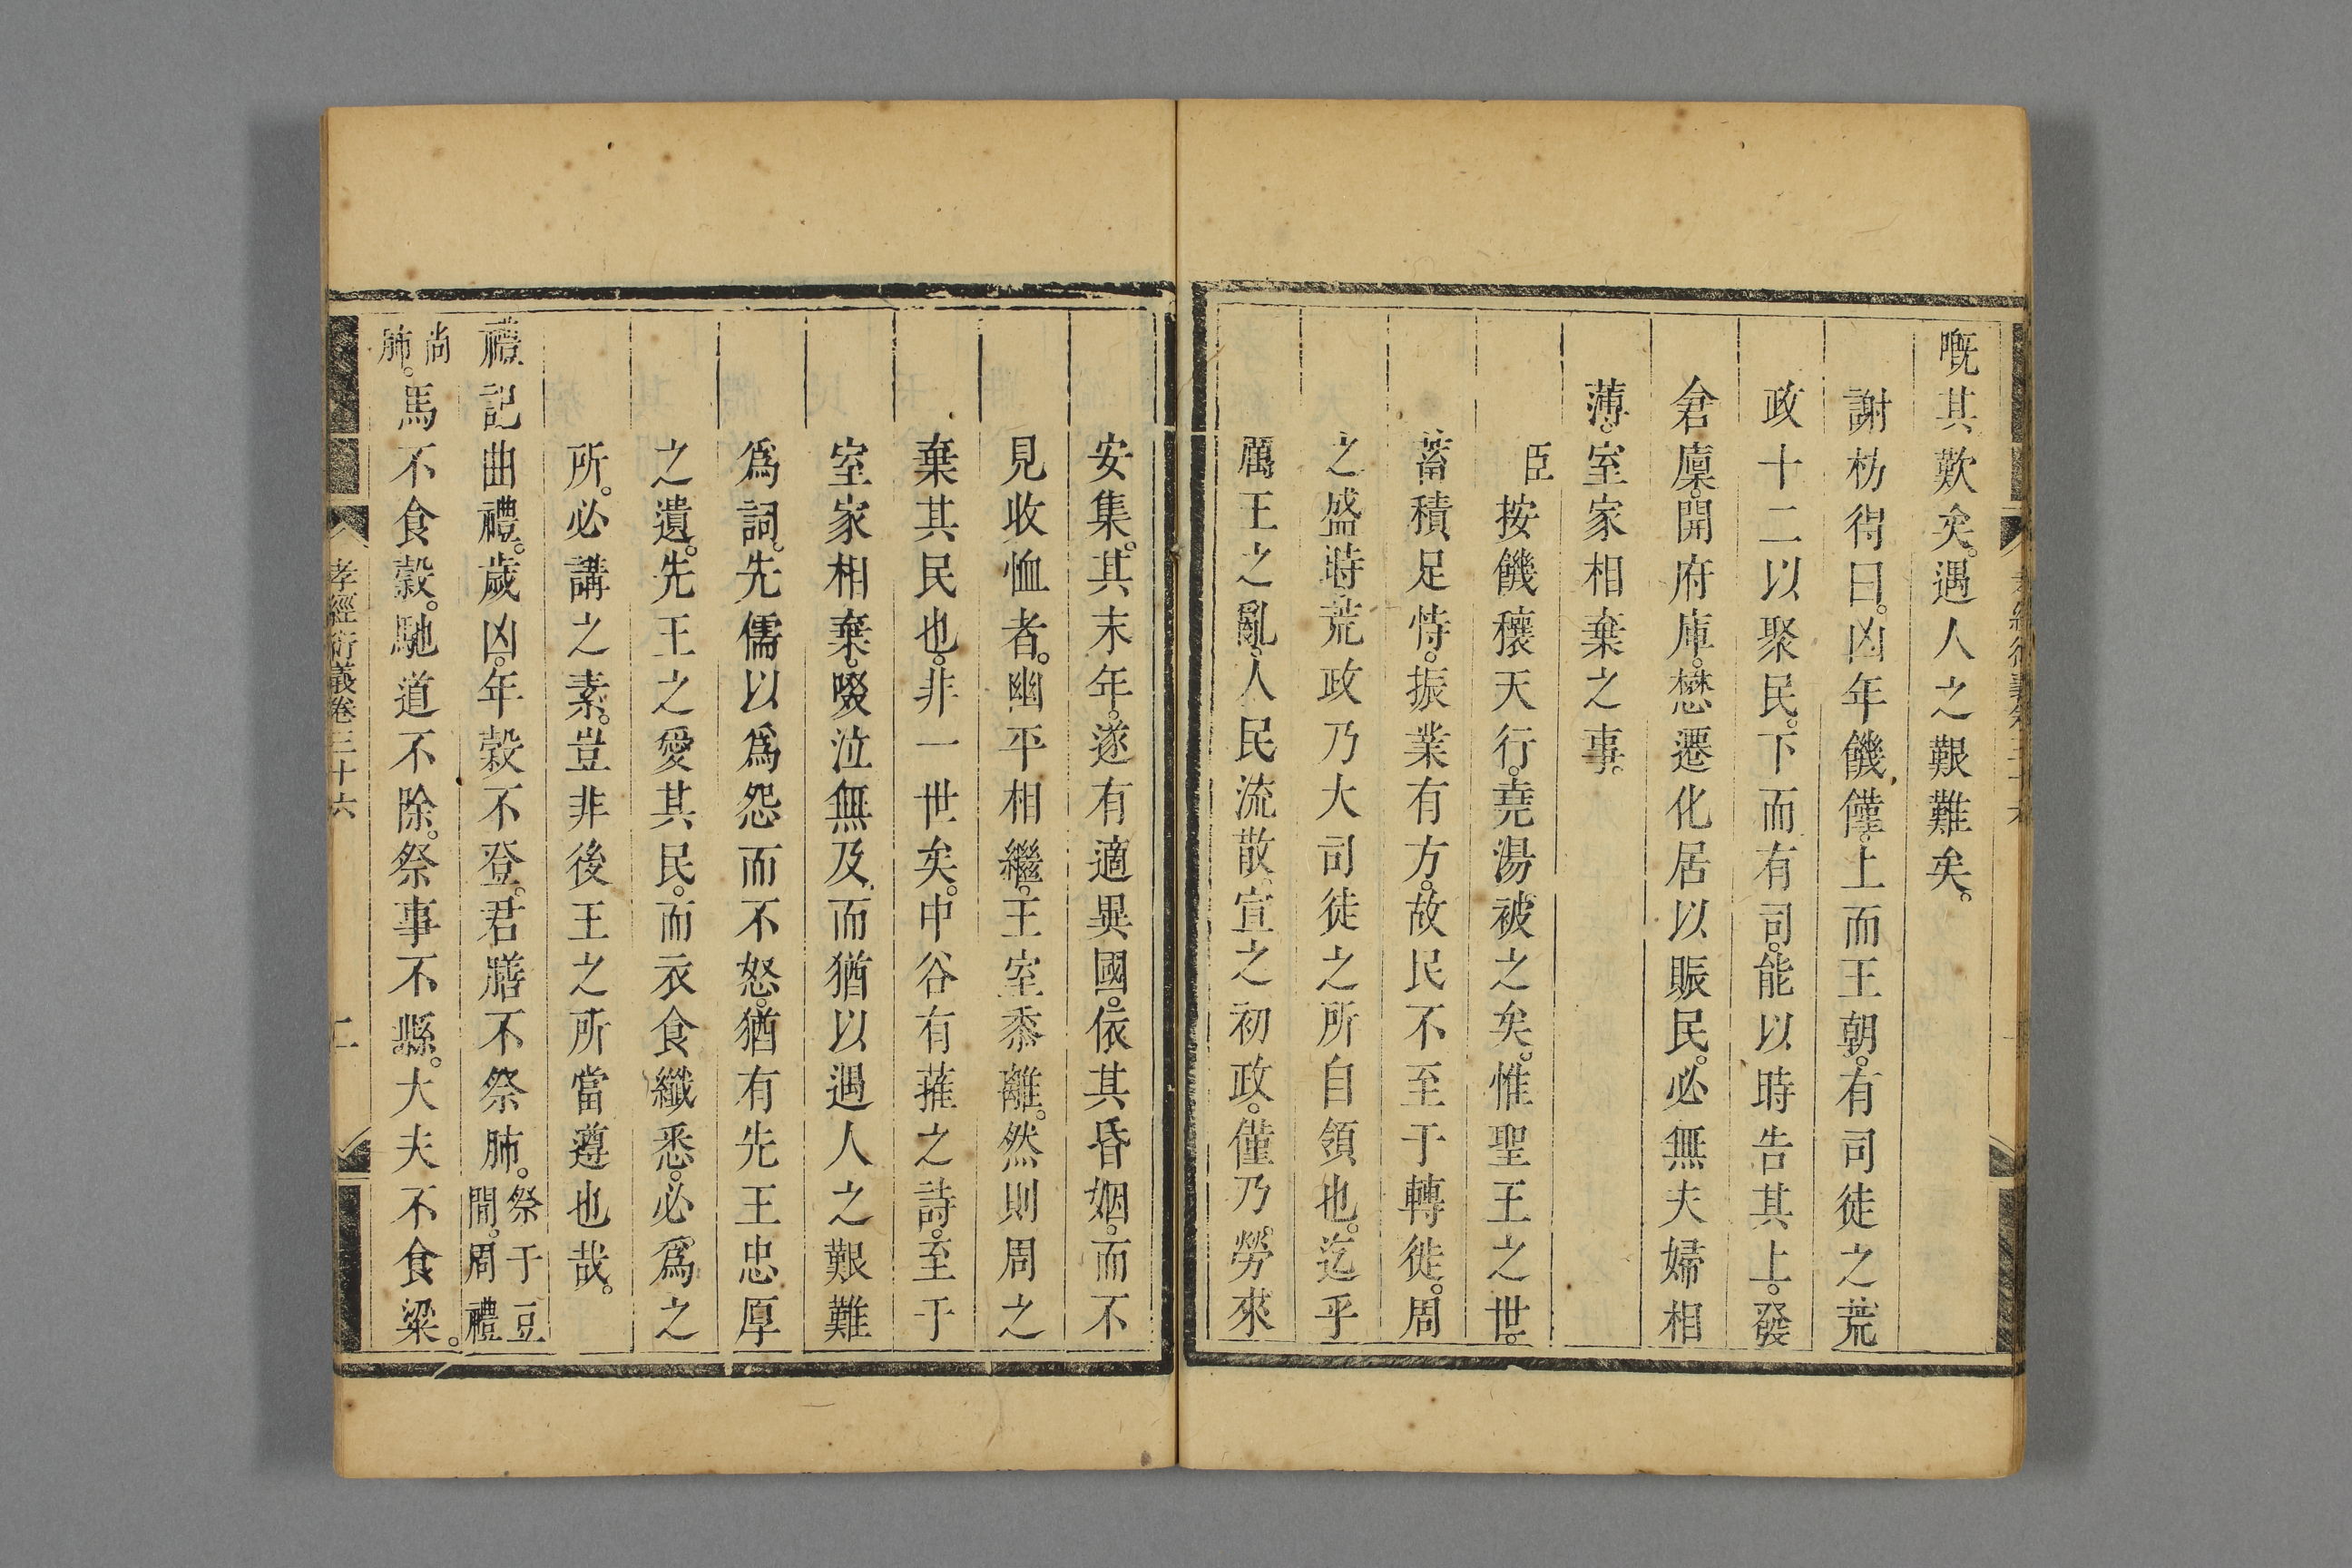 嘅其歎矣。遇人之艱難矣。
謝枋得曰。凶年饑饉。上而王朝。有司徒之荒
政十二以聚民。下而有司。能以時告其上。發
倉廩。開府庫。懋遷化居以賑民。必無夫婦相
薄。室家相棄之事。
臣按饑穰天行。堯湯被之矣。惟聖王之世。
蓄積足恃。振業有方。故民不至于轉徙。周
之盛時。荒政乃大司徒之所自領也。迄乎
厲王之亂。人民流散。宣之初政。僅乃勞來
安集。其末年。遂有適異國。依其昏姻。而不
見收恤者。幽平相繼。王室黍離。然則周之
棄其民也。非一世矣。中谷有蓷之詩。至于
室家相棄。啜泣無及。而猶以遇人之艱難
爲詞。先儒以爲怨而不怒。猶有先王忠厚
之遺。先王之愛其民。而衣食纖悉。必爲之
所。必講之素。豈非後王之所當遵也哉。
禮記曲禮。歲凶。年穀不登。君膳不祭肺。祭于豆
間。周禮
尚
肺。馬不食穀。馳道不除。祭事不縣。大夫不食粱。
孝經衍義卷三十六
二